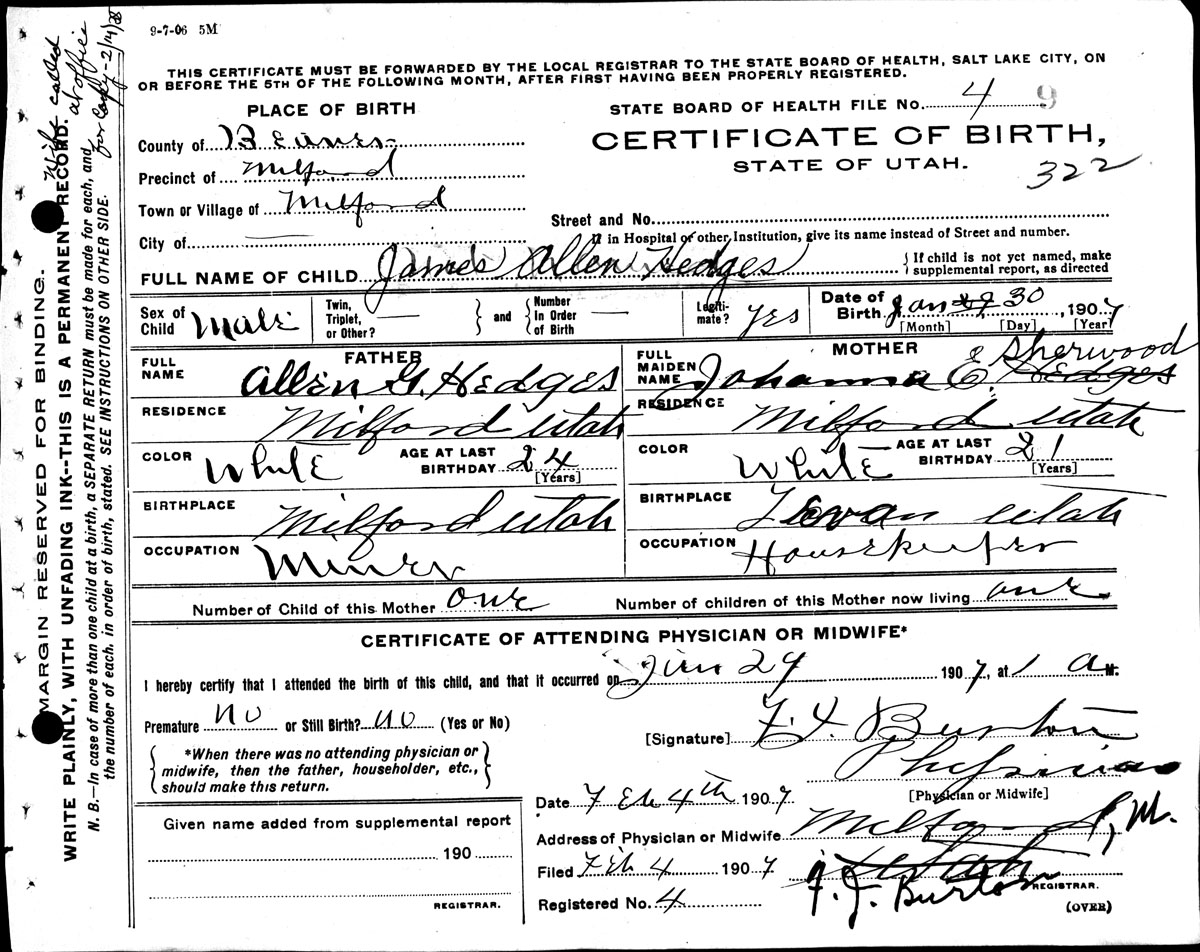 9-7-06 5M
THIS CERTIFICATE MUST BE FORWARDED BY THE LOCAL REGISTRAR TO THE STATE BOARD OF HEALTH, SALT LAKE CITY, ON
OR BEFORE THE 5TH OF THE FOLLOWING MONTH, AFTER FIRST HAVING BEEN PROPERLY REGISTERED.
PLACE OF BIRTH
STATE BOARD OF HEALTH FILE No. 4 9
County of Beaver
CERTIFICATE OF BIRTH,
STATE OF UTAH.
322
Precinct of Milford
Town or Village of Milford
Street and No.
City of
If in Hospital of other Institution, give its name instead of Street and number.
FULL NAME OF CHILD James Allen Hedges { If child is not yet named, make
supplemental report, as directed
Sex of Child Male
Twin, Triplet, or Other? — } and { Number In Order of Birth —
Legitimate? yes
Date of Birth Jan 29 30, 1907
[Month] [Day] [Year]
FATHER
FULL NAME Allen G. Hedges
RESIDENCE Milford Utah
COLOR White AGE AT LAST BIRTHDAY 24 [Years]
BIRTHPLACE Milford Utah
OCCUPATION Miner
MOTHER
FULL MAIDEN NAME Johanna E. Hedges E Sherwood
RESIDENCE Milford Utah
COLOR White AGE AT LAST BIRTHDAY 21 [Years]
BIRTHPLACE Levan Utah
OCCUPATION Housekeeper
Number of Child of this Mother one Number of children of this Mother now living one
CERTIFICATE OF ATTENDING PHYSICIAN OR MIDWIFE*
I hereby certify that I attended the birth of this child, and that it occurred on 29 1907, at 1 a M.
Premature no or Still Birth? no (Yes or No)
[Signature] Burton
Physician
[Physician or Midwife]
{ *When there was no attending physician or
midwife, then the father, householder, etc.,
should make this return. }
Date Feb 4th 1907
Address of Physician or Midwife Milford
Given name added from supplemental report
190
REGISTRAR.
Filed Feb 4 1907
F. J. Burton
REGISTRAR.
Registered No. 4
(OVER)
MARGIN RESERVED FOR BINDING.
WRITE PLAINLY, WITH UNFADING INK--THIS IS A PERMANENT RECORD.
N. B.—In case of more than one child at a birth, a SEPARATE RETURN must be made for each, and
the number of each, in order of birth, stated. SEE INSTRUCTIONS ON OTHER SIDE.
Wife called
at office
for copy-2/4/38